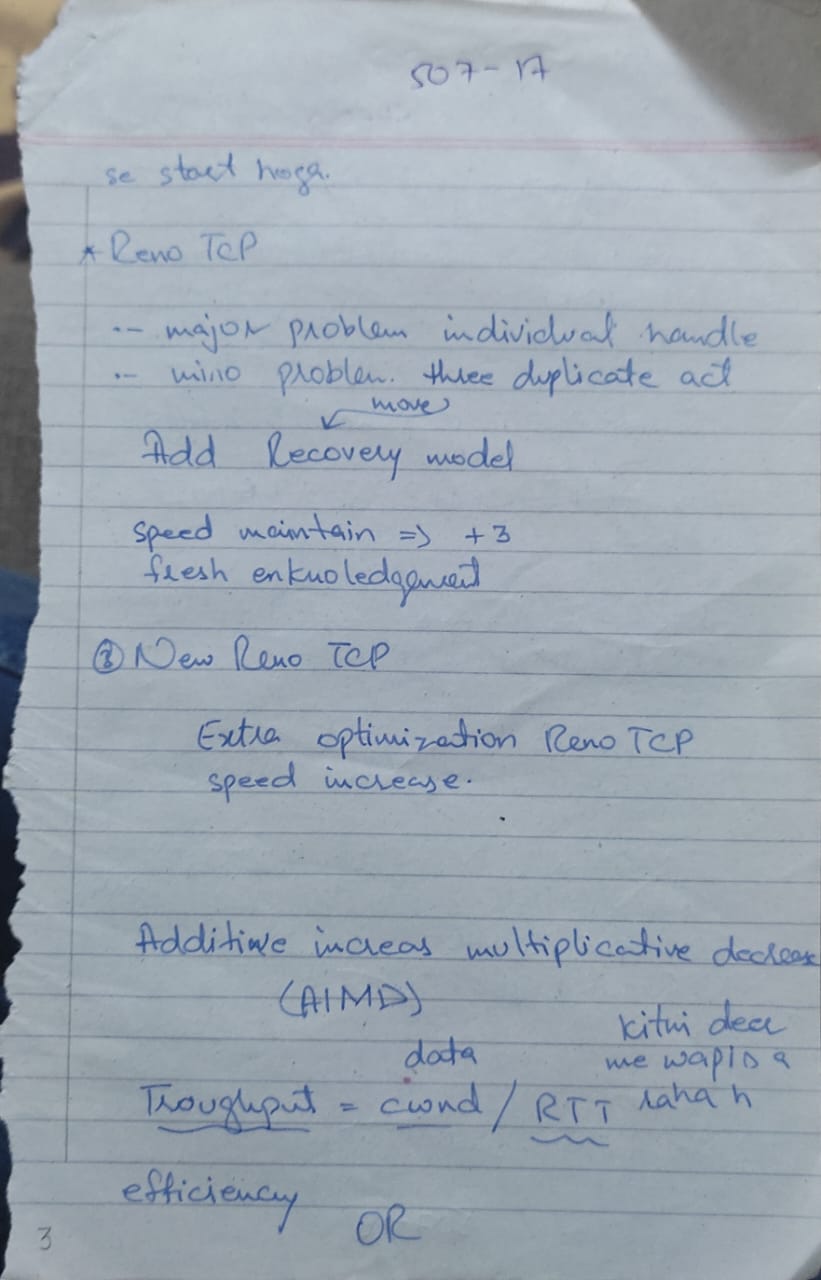 507-17
se start hoga.
* Reno TCP
-- major problem individual handle
-- mino problem. three duplicate act
move
Add Recovery model
speed maintain => +3
fresh enknoledgement
② New Reno TCP
Extra optimization Reno TCP
speed increase.
Additive increas multiplicative decreas
(AIMD)
kitni decr
data me wapis a
Troughput = cwnd / RTT raha h
efficiency
OR
3